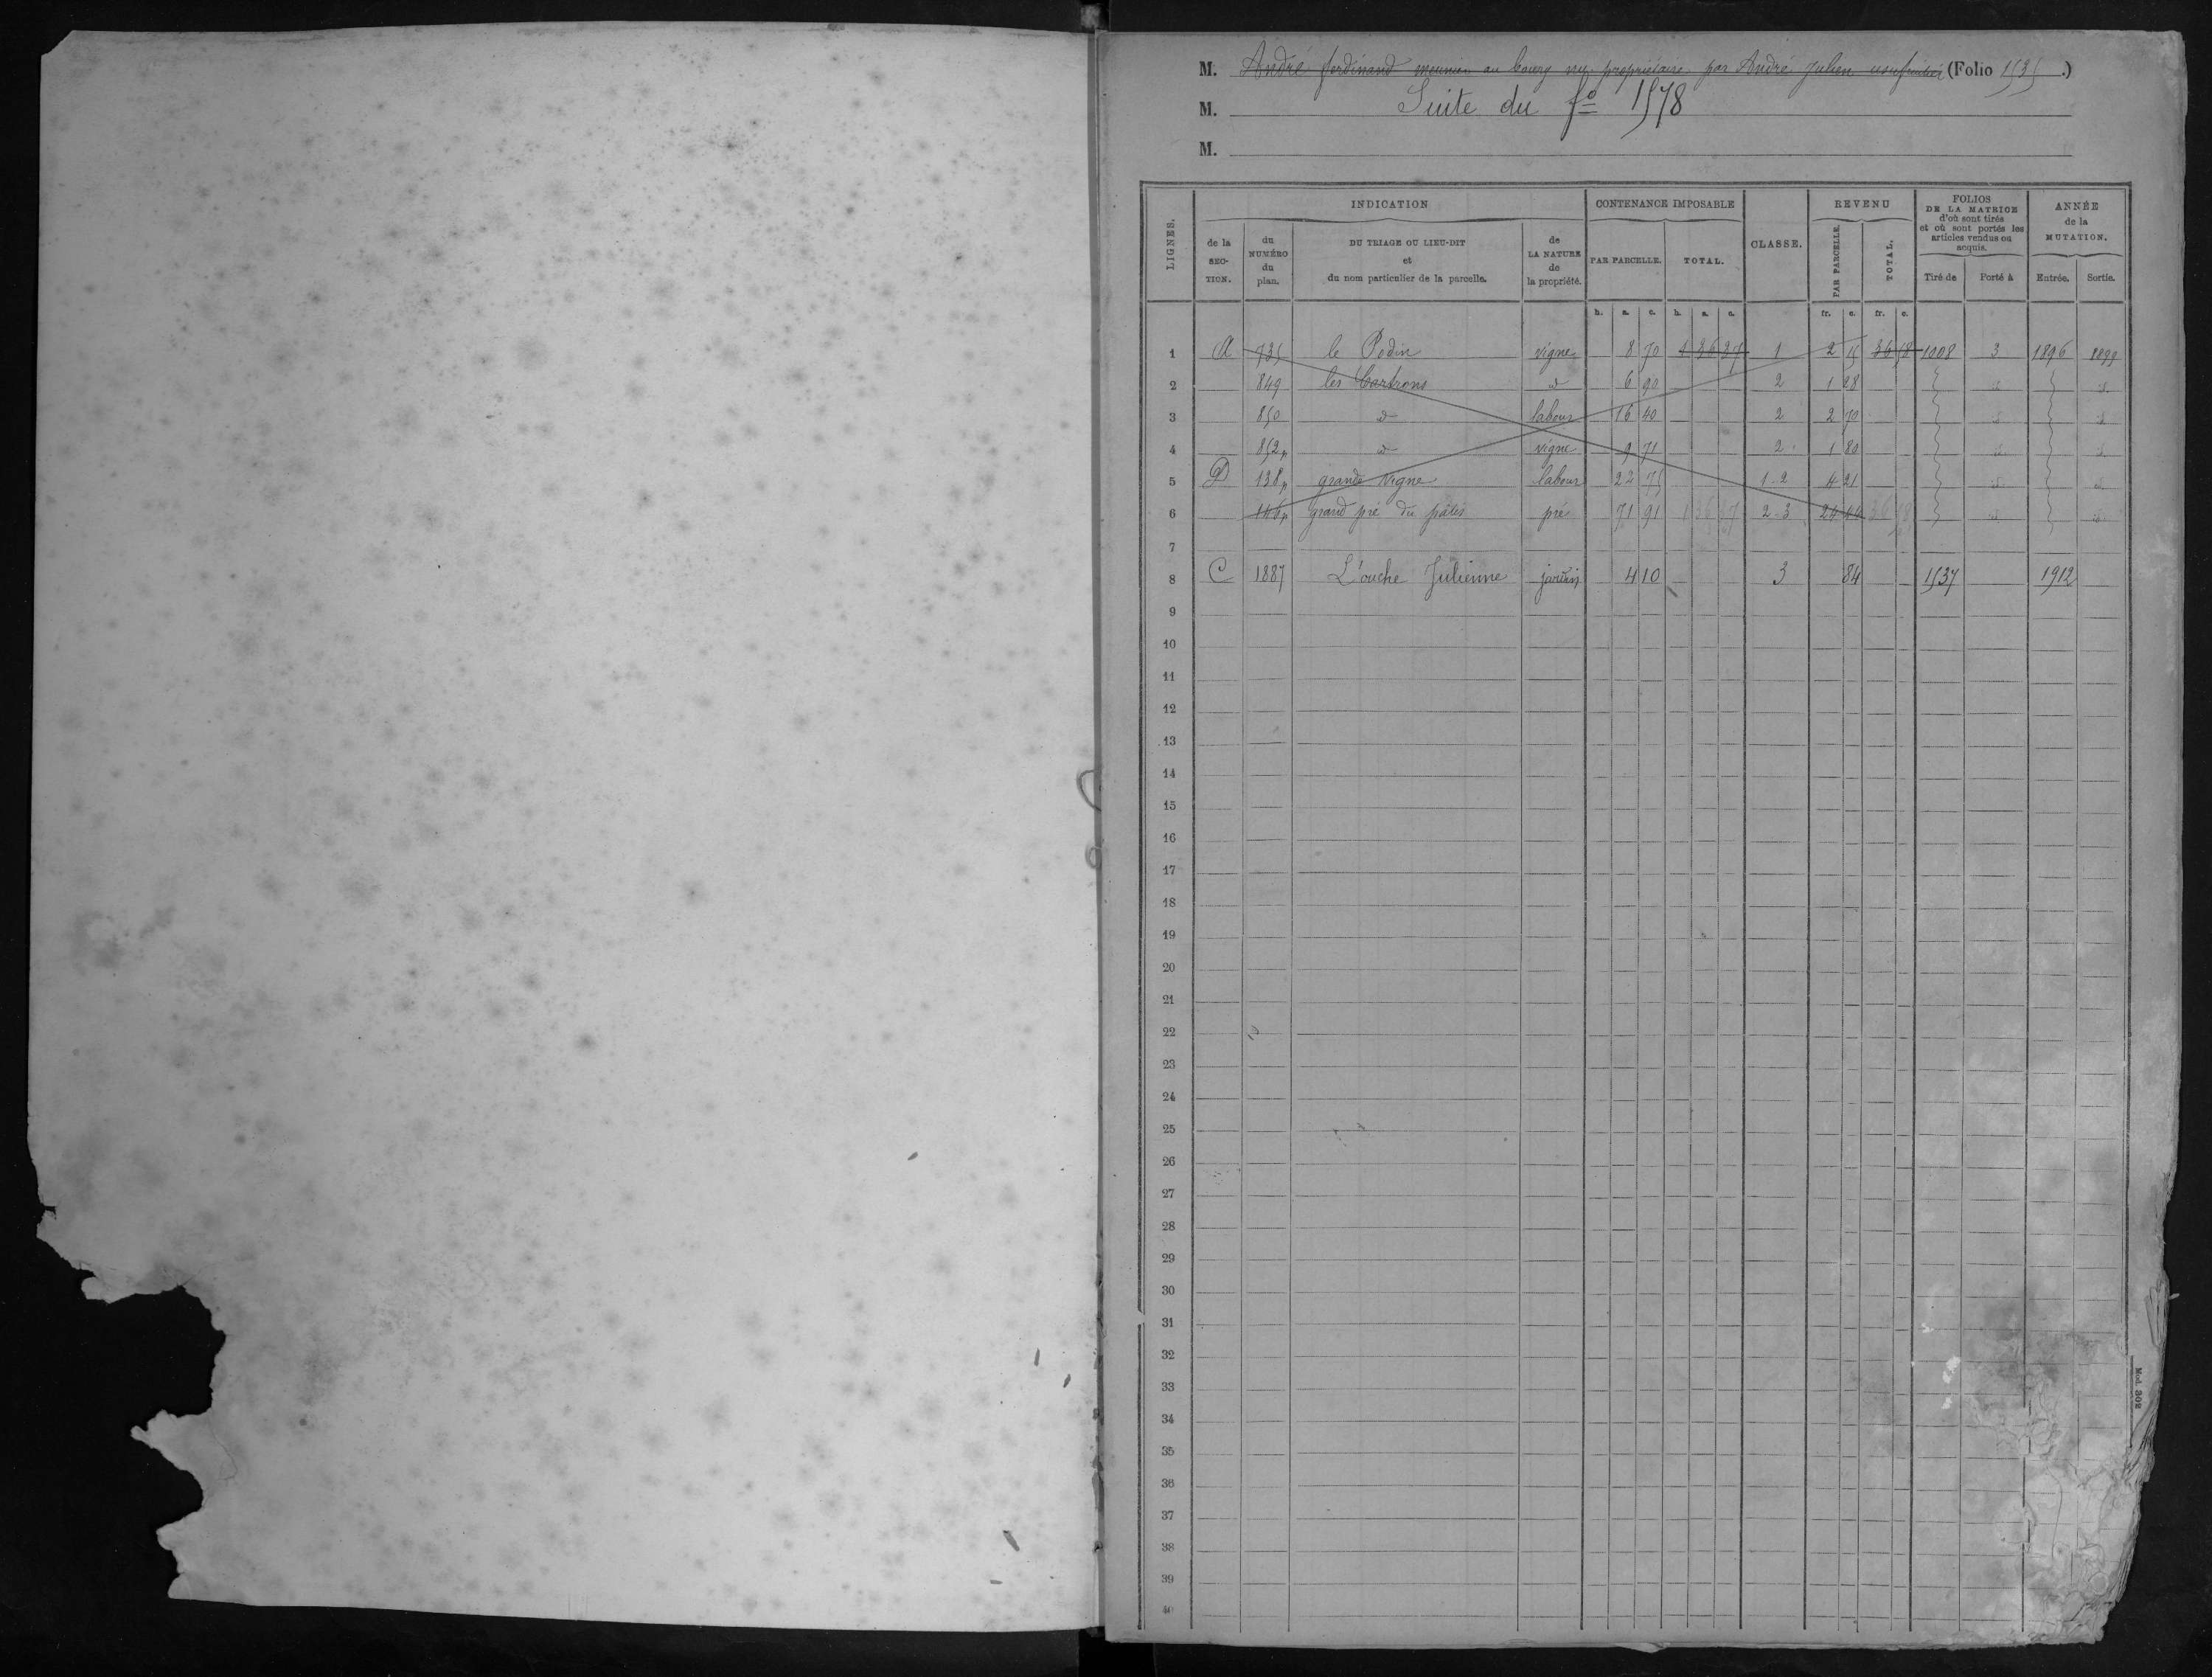 M. André ferdinand meunier au bourg nu-propriétaire par André Julien usufruitier (Folio 1535.)
M. Suite du fo 1578
M.
LIGNES. INDICATION CONTENANCE IMPOSABLE CLASSE. REVENU FOLIOS DE LA MATRICE d'où sont tirés et où sont portés les articles vendus ou acquis. ANNÉE de la MUTATION.
de la SECTION. du NUMÉRO du plan. DU TRIAGE OU LIEU-DIT et du nom particulier de la parcelle. de LA NATURE de la propriété. PAR PARCELLE. TOTAL. PAR PARCELLE. TOTAL. Tiré de Porté à Entrée. Sortie.
h. a. c. h. a. c. fr. c. fr. c.
1 A 735 le Podin vigne 8 70 1 36 37 1 2 15 36 58 1008 3 1896 1899
2 849 les d 6 90 2 1 28 d d
3 850 d labour 16 40 2 2 70 d d
4 852p d vigne 9 71 2 1 80 d d
5 D 138p grande Vigne labour 22 75 1-2 4 21 d d
6 146p grand pré du pâtis pré 71 91 1 36 37 2-3 24 44 36 58 d d
7
8 C 1887 L'ouche Julienne jardin 4 10 3 84 1537 1912
9
10
11
12
13
14
15
16
17
18
19
20
21
22
23
24
25
26
27
28
29
30
31
32
33
34
35
36
37
38
39
40
Mod. 302